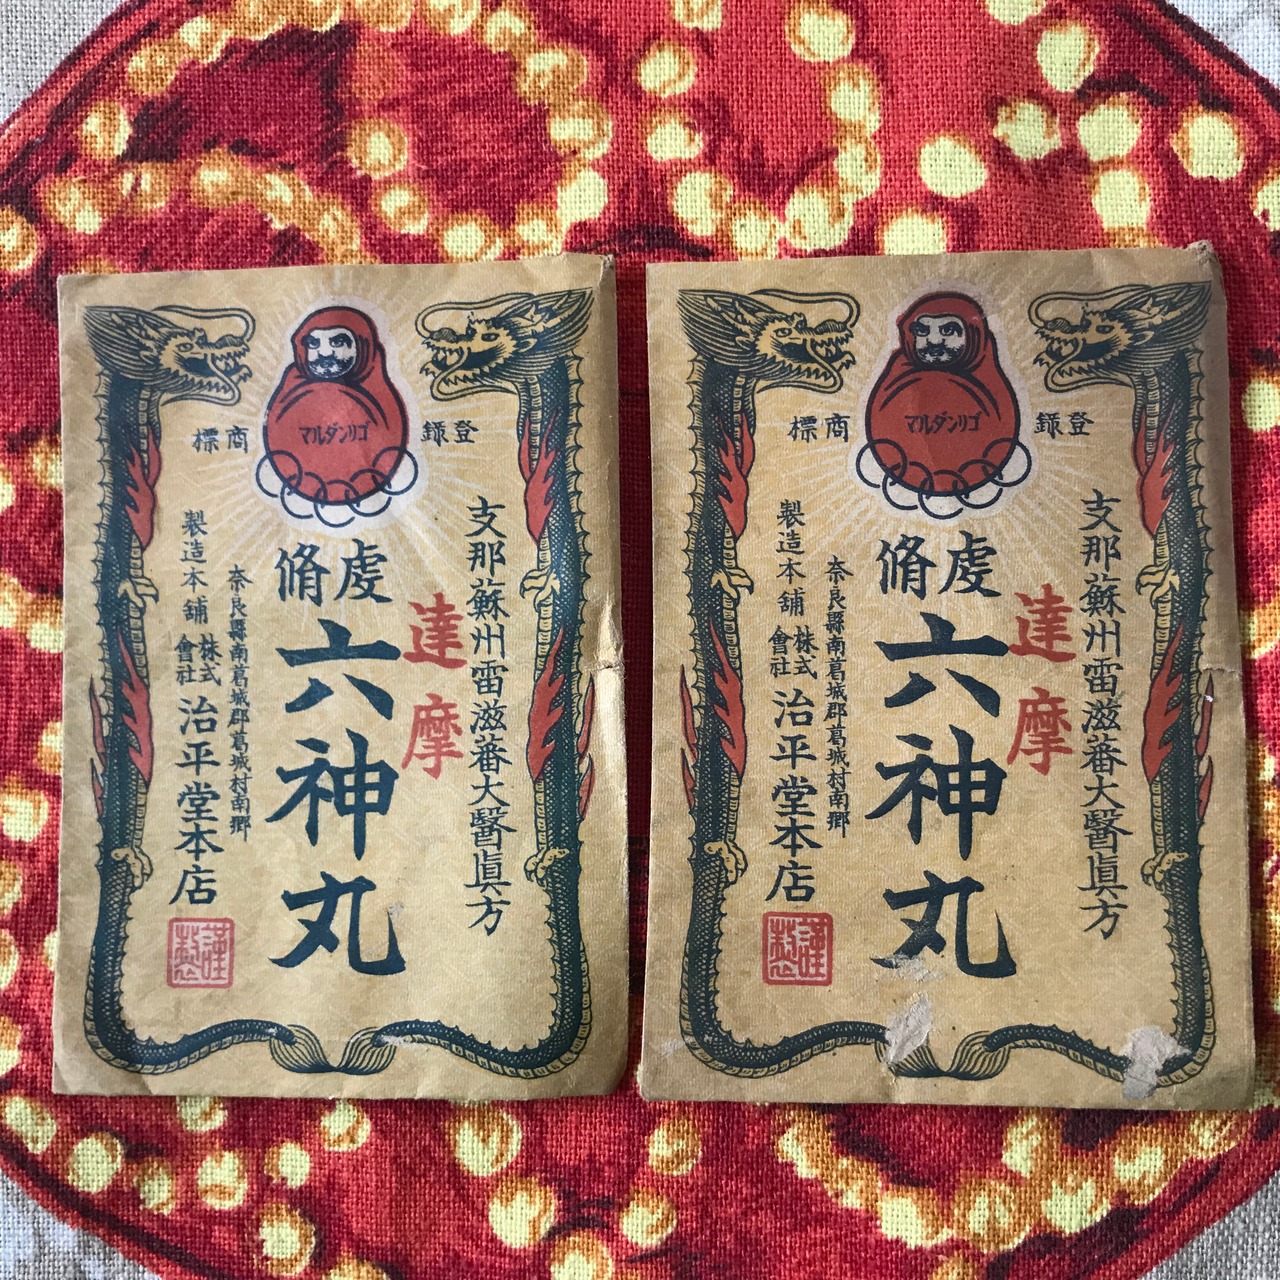 登録商標
ゴリンダルマ
支那蘇州雷滋蕃大醫眞方
達摩
虔脩
六神丸
奈良縣南葛城郡葛城村南郷
製造本舗 株式會社 治平堂本店
謹製
登録商標
ゴリンダルマ
支那蘇州雷滋蕃大醫眞方
達摩
虔脩
六神丸
奈良縣南葛城郡葛城村南郷
製造本舗 株式會社 治平堂本店
謹製